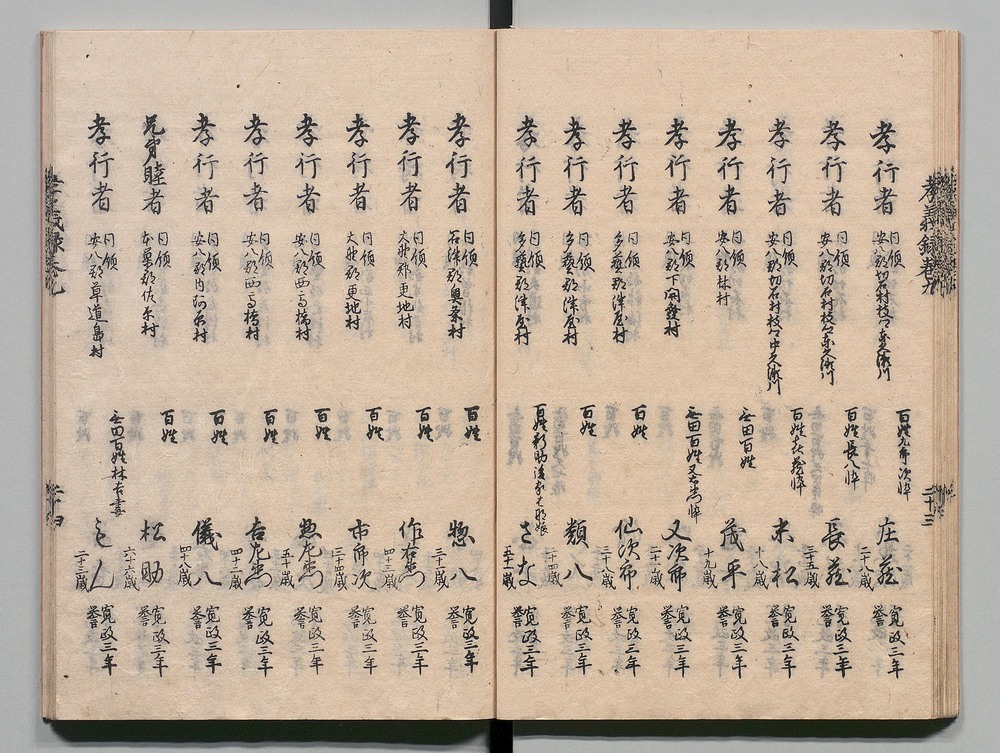 孝義録巻九
二十三
孝行者 同領 安八郡切石村枝 百姓九郎次悴 庄蔵 二十八歳 寛政三年 誉
孝行者 同領 安八郡切石村枝 百姓長八悴 長蔵 三十五歳 寛政三年 誉
孝行者 同領 安八郡切石村枝 百姓 悴 末松 十八歳 寛政三年 誉
孝行者 同領 安八郡林村 無田百姓 茂平 十九歳 寛政三年 誉
孝行者 同領 安八郡下開発村 無田百姓 悴 又次郎 二十二歳 寛政三年 誉
孝行者 同領 多藝郡津屋村 百姓 仙次郎 二十八歳 寛政三年 誉
孝行者 同領 多藝郡津屋村 百姓 類八 二十四歳 寛政三年 誉
孝行者 同領 多藝郡津屋村 さな 五十二歳 寛政三年 誉
孝行者 同領 石津郡奥条村 百姓 惣八 三十歳 寛政三年 誉
孝行者 同領 大野郡更地村 百姓 作右衛門 四十二歳 寛政三年 誉
孝行者 同領 大野郡更地村 百姓 市郎次 三十四歳 寛政三年 誉
孝行者 同領 安八郡西高橋村 百姓 惣左衛門 五十歳 寛政三年 誉
孝行者 同領 安八郡西高橋村 百姓 古左衛門 四十二歳 寛政三年 誉
孝行者 同領 安八郡内阿原村 百姓 儀八 四十八歳 寛政三年 誉
兄弟睦者 同領 本巣郡 村 百姓 松助 六十六歳 寛政三年 誉
孝行者 同領 安八郡草道島村 無田百姓林右妻 二十三歳 寛政三年 誉
孝義録巻九
二十四